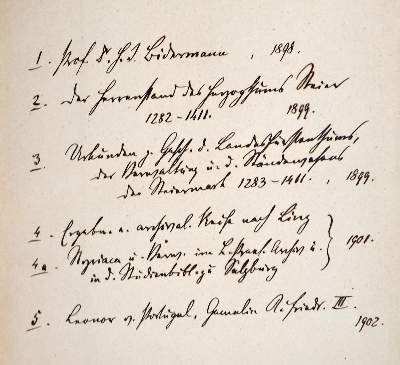 1. Prof. Dr. H. I. Bidermann, 1898.
2. Der Herrenstand des Herzogthums Steier
1282-1411. 1899.
3. Urkunden z. Gesch. d. Landesfürstenthums,
der Verwaltung u. d. Ständewesens
der Steiermark 1283-1411., 1899.
4. Ergebn. e. archival. Reise nach Linz
4a. Styriaca u. Verw. im k. k. Archiv u.
in d. Studienbibl. zu Salzburg } 1901.
5. Leonor v. Portugal, Gemalin K. Friedr. III.
1902.